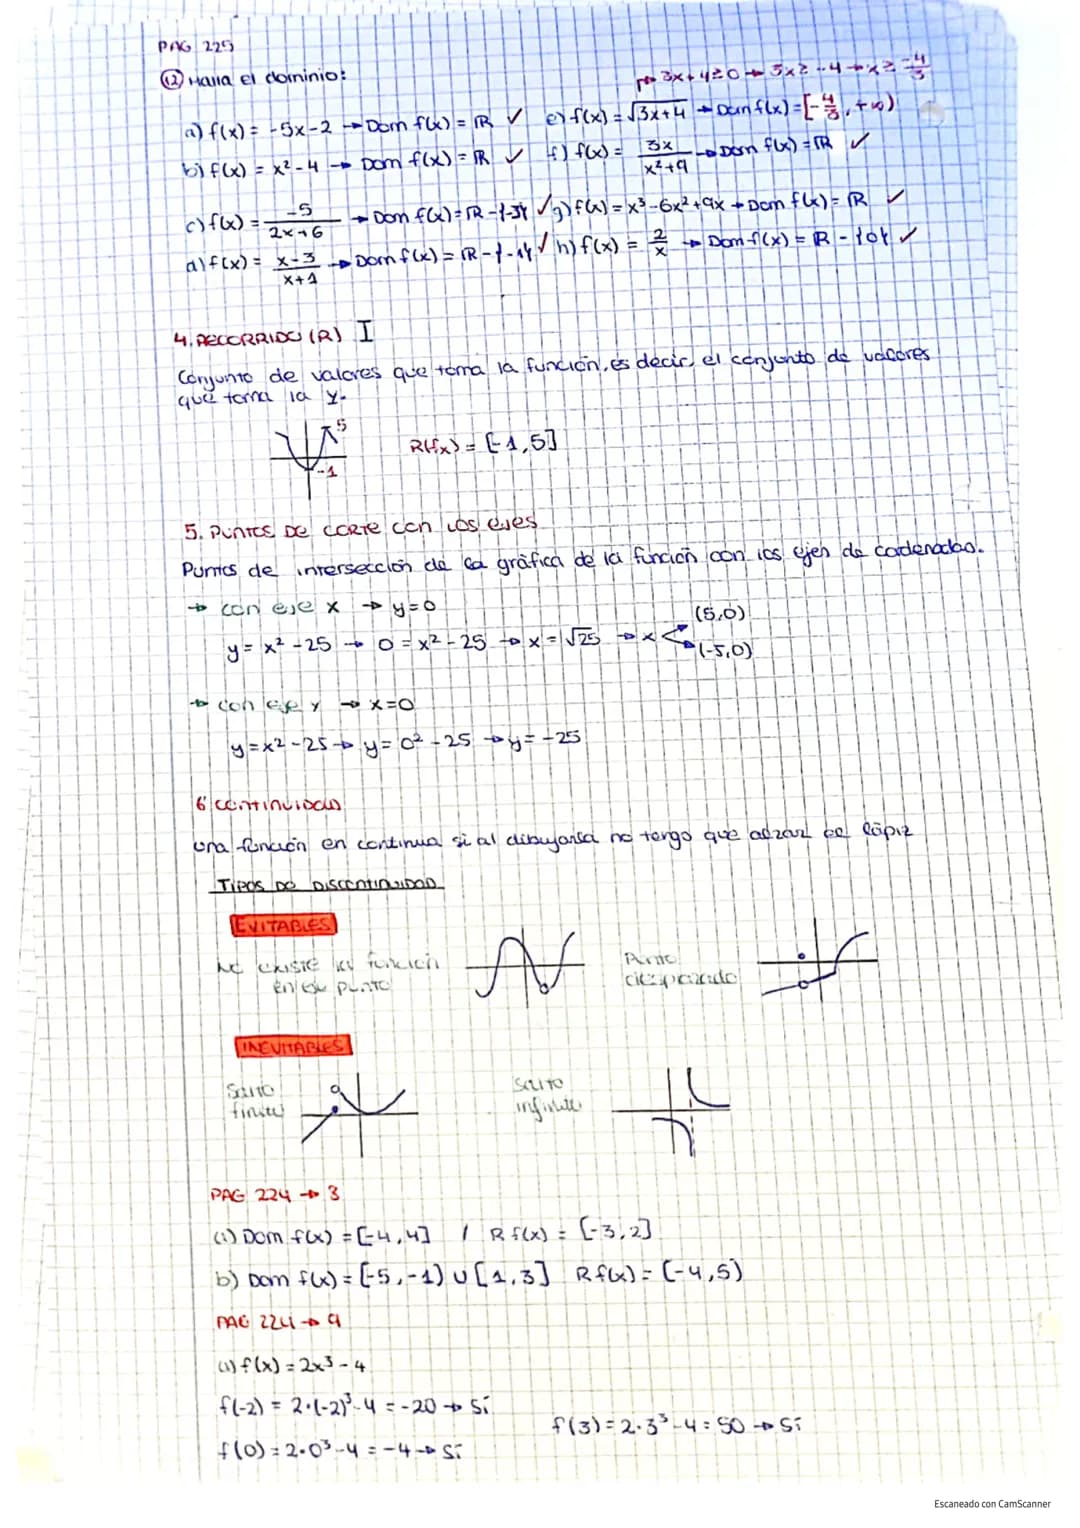 PAG 225
⑫ Halla el dominio:
→ 3x+4≥0 → 3x≥-4 → x≥ -4/3
a) f(x) = -5x-2 → Dom f(x) = ℝ ✓ e) f(x) = √3x+4 → Dom f(x) = [-4/3, +∞)
b) f(x) = x²-4 → Dom f(x) = ℝ ✓ f) f(x) = 3x/x²+9 → Dom f(x) = ℝ ✓
c) f(x) = -5/2x+6 → Dom f(x) = ℝ-{-3} ✓ g) f(x) = x³-6x²+9x → Dom f(x) = ℝ ✓
d) f(x) = x-3/x+1 → Dom f(x) = ℝ-{-1} ✓ h) f(x) = 2/x → Dom f(x) = ℝ-{0} ✓
4. RECORRIDO (R) I
Conjunto de valores que toma la función, es decir, el conjunto de valores
que toma la y.
5
R(fx) = [-1,5]
-1
5. PUNTOS DE CORTE con los ejes
Puntos de intersección de la gráfica de la función con los ejes de cordenadas.
→ con eje x → y=0
(5,0)
y = x²-25 → 0 = x²-25 → x = √25 → x
(-5,0)
→ con eje y → x=0
y=x²-25 → y= 0²-25 → y= -25
6 CONTINUIDAD
una función en continua si al dibujarla no tengo que alzar el lápiz
TIPOS DE DISCONTINUIDAD
EVITABLES
NO EXISTE la función
en el punto
Punto
desplazado
INEVITABLES
Salto
finito
Salto
infinito
PAG 224 → 3
a) Dom f(x) = [-4,4] / R f(x) = [-3,2]
b) Dom f(x) = [-5,-1) ∪ [1,3] R f(x) = (-4,5)
PAG 224 → 9
a) f(x) = 2x³-4
f(-2) = 2·(-2)³-4 = -20 → Sí
f(3) = 2·3³-4 = 50 → Sí
f(0) = 2·0³-4 = -4 → Sí
Escaneado con CamScanner